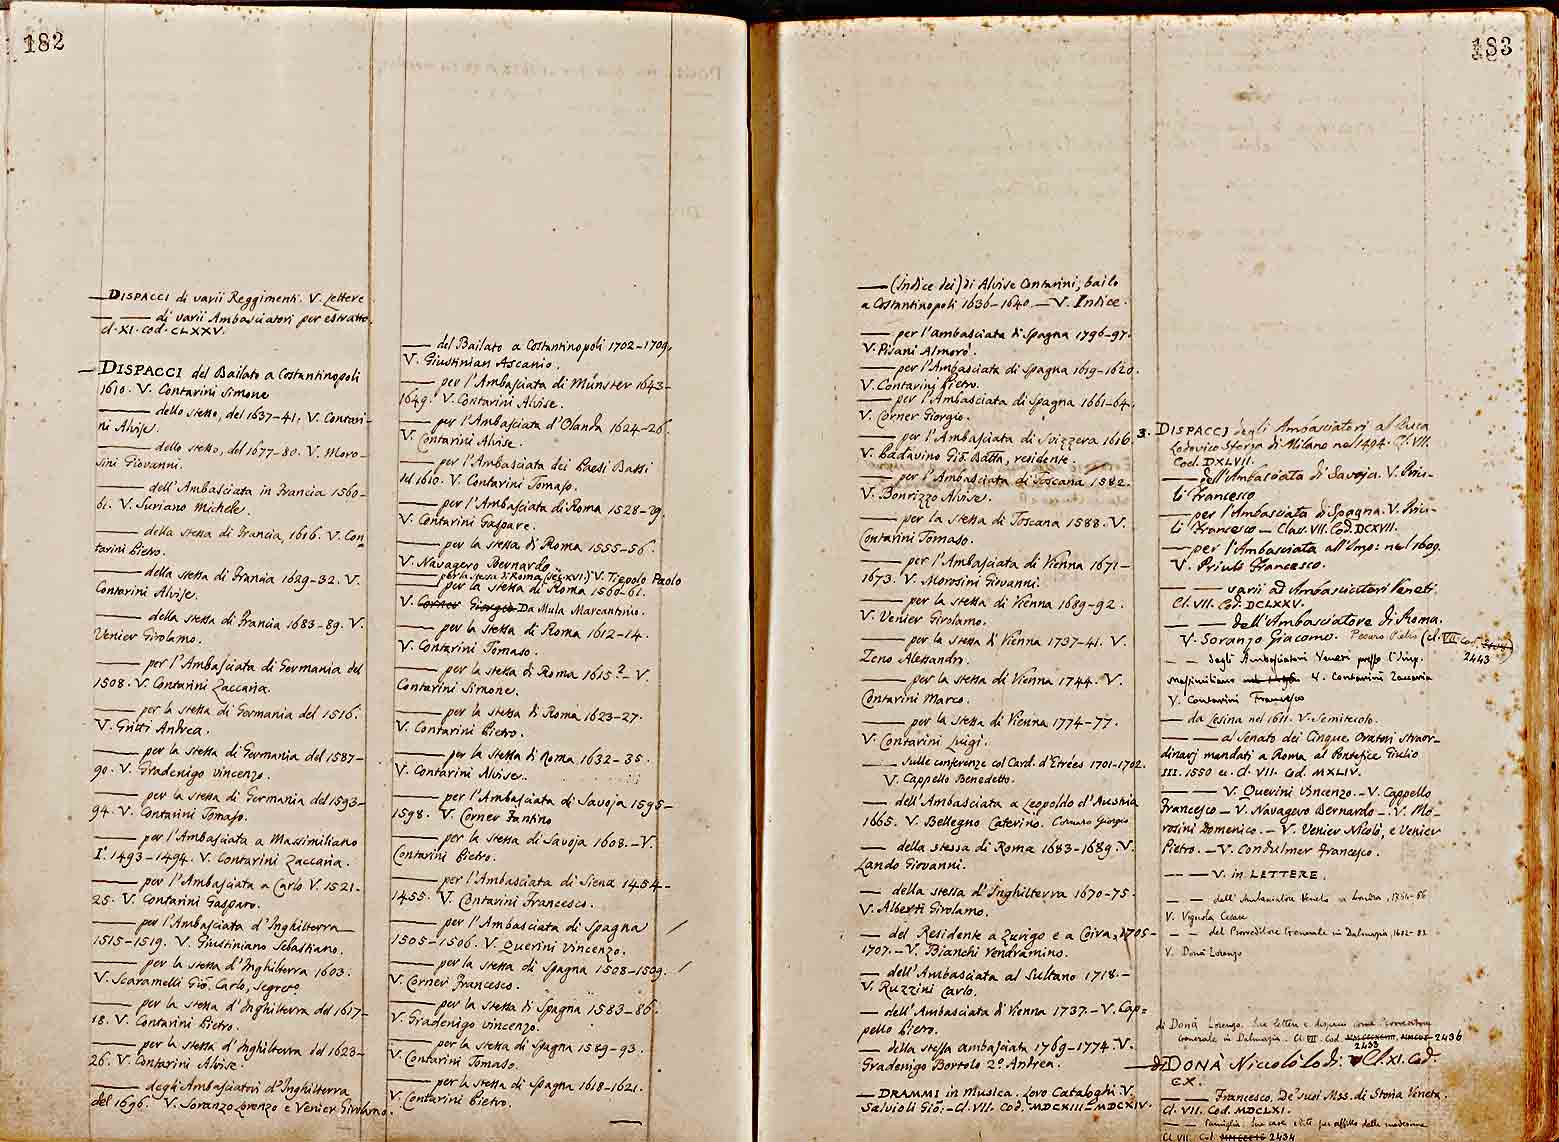 182
— DISPACCI di varii Reggimenti. V. Lettere
— — di varii Ambasciatori per estratto.
cl. XI. cod. CLXXV.
— DISPACCI del Bailato a Costantinopoli
1610. V. Contarini Simone
— dello stesso, del 1637-41. V. Contari-
ni Alvise.
— dello stesso, del 1677-80. V. Moro-
sini Giovanni.
— dell'Ambasciata in Francia 1560-
61. V. Suriano Michele.
— della stessa di Francia, 1616. V. Con
tarini Pietro.
— della stessa di Francia 1629-32. V.
Contarini Alvise.
— della stessa di Francia 1683-89. V.
Venier Girolamo.
— per l'Ambasciata di Germania del
1508. V. Contarini Zaccaria.
— per la stessa di Germania del 1516.
V. Gritti Andrea.
— per la stessa di Germania del 1587-
90. V. Gradenigo Vincenzo.
— per la stessa di Germania del 1593-
94. V. Contarini Tomaso.
— per l'Ambasciata a Massimiliano
I.° 1493-1494. V. Contarini Zaccaria.
— per l'Ambasciata a Carlo V. 1521-
25. V. Contarini Gasparo.
— per l'Ambasciata d'Inghilterra
1515-1519. V. Giustiniano Sebastiano.
— per la stessa d'Inghilterra 1603.
V. Scaramelli Gio. Carlo, Segret.o
— per la stessa d'Inghilterra del 1617-
18. V. Contarini Pietro.
— per la stessa d'Inghilterra del 1623-
26. V. Contarini Alvise.
— degli Ambasciatori d'Inghilterra
del 1696. V. Soranzo Lorenzo e Venier Girolamo.
— del Bailato a Costantinopoli 1702-1709.
V. Giustinian Ascanio.
— per l'Ambasciata di Münster 1643-
1649. V. Contarini Alvise.
— per l'Ambasciata d'Olanda 1624-26.
V. Contarini Alvise.
— per l'Ambasciata dei Paesi Bassi
1610. V. Contarini Tomaso.
— per l'Ambasciata di Roma 1528-29.
V. Contarini Gaspare.
— per la stessa di Roma 1555-56.
V. Navagero Bernardo.
— per la stessa di Roma (sec. XVI.) V. Tiepolo Paolo
— per la stessa di Roma 1560-61.
V. Corner Giorgio Da Mula Marcantonio.
— per la stessa di Roma 1612-14.
V. Contarini Tomaso.
— per la stessa di Roma 1615? - V.
Contarini Simone.
— per la stessa di Roma 1623-27.
V. Contarini Pietro.
— per la stessa di Roma 1632-35.
V. Contarini Alvise.
— per l'Ambasciata di Savoja 1595-
1598. V. Corner Fantino
— per la stessa di Savoja 1608. - V.
Contarini Pietro.
— per l'Ambasciata di Siena 1454-
1455. V. Contarini Francesco.
— per l'Ambasciata di Spagna
1505-1506. V. Querini Vincenzo.
— per la stessa di Spagna 1508-1509.
V. Corner Francesco.
— per la stessa di Spagna 1583-86.
V. Gradenigo Vincenzo.
— per la stessa di Spagna 1589-93.
V. Contarini Tomaso.
— per la stessa di Spagna 1618-1621.
V. Contarini Pietro.
183
— (Indice dei) di Alvise Contarini, bailo
a Costantinopoli 1636-1640. — V. Indice.
— per l'ambasciata di Spagna 1796-97.
V. Pisani Almorò.
— per l'Ambasciata di Spagna 1619-1620.
V. Contarini Pietro.
— per l'Ambasciata di Spagna 1661-64.
V. Corner Giorgio.
— per l'Ambasciata di Svizzera 1616.
V. Padavino Gio. Batta, residente.
— per l'Ambasciata di Toscana 1582.
V. Bonrizzo Alvise.
— per la stessa di Toscana 1588. V.
Contarini Tomaso.
— per l'Ambasciata di Vienna 1671-
1673. V. Morosini Giovanni.
— per la stessa di Vienna 1689-92.
V. Venier Girolamo.
— per la stessa di Vienna 1737-41. V.
Zeno Alessandro.
— per la stessa di Vienna 1744. V.
Contarini Marco.
— per la stessa di Vienna 1774-77.
V. Contarini Luigi.
— Sulle conferenze col Card. d'Etrées 1701-1702.
V. Cappello Benedetto.
— dell'Ambasciata a Leopoldo d'Austria
1665. V. Bellegno Caterino. Cornaro Giorgio
— della stessa di Roma 1683-1689. V.
Lando Giovanni.
— della stessa d'Inghilterra 1670-75.
V. Alberti Girolamo.
— del Residente a Zurigo e a Coira, 1705-
1707. - V. Bianchi Vendramino.
— dell'Ambasciata al Sultano 1718. -
V. Ruzzini Carlo.
— dell'Ambasciata di Vienna 1737. - V. Cap=
pello Pietro.
— della stessa ambasciata 1769-1774 V.
Gradenigo Bortolo 2.° Andrea.
— DRAMMI in Musica. Loro Cataloghi. V.
Salvioli Gio: - Cl. VII. Cod. MDCXIII-MDCXIV.
3. DISPACCI degli Ambasciatori al Duca
Lodovico Sforza di Milano nel 1494. Cl. VII.
Cod. DXLVII.
— dell'Ambasciata di Savoja. V. Priu-
li Francesco
— per l'Ambasciata di Spagna. V. Priu-
li Francesco — Class. VII. Cod. DCXVII.
— per l'Ambasciata all'Imp: nel 1609.
V. Priuli Francesco.
— varii ad Ambasciatori Veneti.
Cl. VII. Cod. DCLXXV.
— — dell'Ambasciatore di Roma.
V. Soranzo Giacomo. Pesaro Pietro (cl. VII Cod.
2443
— — degli Ambasciatori Veneti presso l'Imp.
Massimiliano nel 1496 V. Contarini Zaccaria
V. Contarini Francesco
— da Lesina nel 1611. V. Semitecolo.
— al Senato dei Cinque Oratori straor-
dinarj mandati a Roma al Pontefice Giulio
III. 1550 ec. Cl. VII. Cod. MXLIV.
— — V. Querini Vincenzo. - V. Cappello
Francesco - V. Navagero Bernardo - V. Mo-
rosini Domenico. - V. Venier Nicolò, e Venier
Pietro. - V. Condulmer Francesco.
— — V. in LETTERE.
— — dell'Ambasciatore Veneto a Londra,
V. Vignola Cesare
— — del Provveditore Generale in Dalmazia, 1682-82
V. Donà Lorenzo
di Donà Lorenzo. Sue lettere e dispacci come Provveditore
Generale in Dalmazia. Cl. VII. Cod. 2436
2433
— di DONÀ Niccolò Lodi. V Cl. XI. Cod.
CX.
— — Francesco. De' suoi Mss. di Storia Veneta.
Cl. VII. Cod. MDCLXI.
— — Famiglia. Sue case
Cl. VII. Cod. 2434